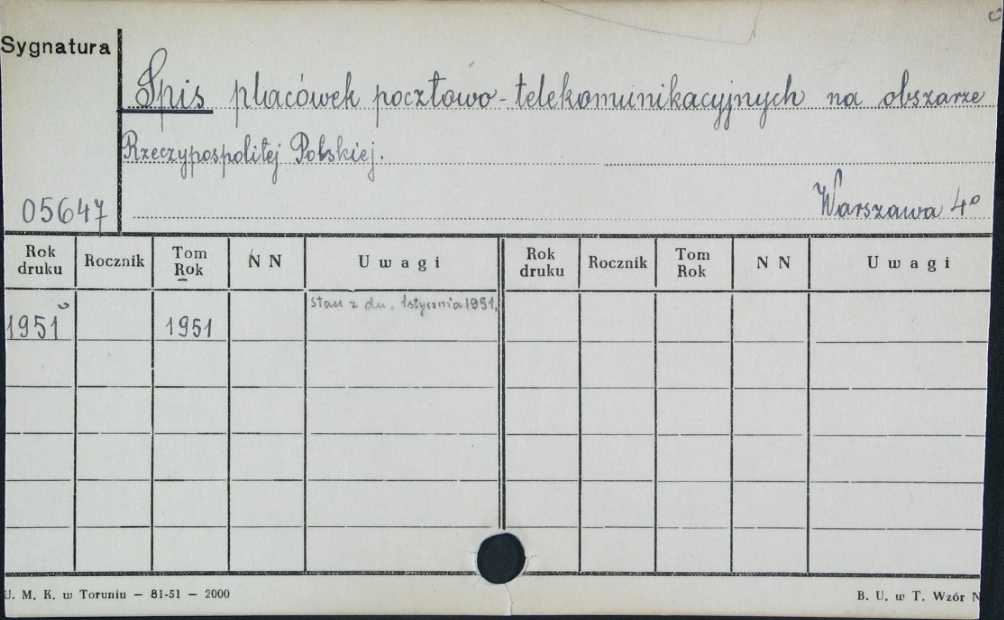 Sygnatura
Spis placówek pocztowo-telekomunikacyjnych na obszarze
Rzeczypospolitej Polskiej.
05647
Warszawa 4°
Rok druku Rocznik Tom Rok N N Uwagi Rok druku Rocznik Tom Rok N N Uwagi
1951 1951 Stan z dn. 1 stycznia 1951.
U. M. K. w Toruniu — 81-51 — 2000
B. U. w T. Wzór N